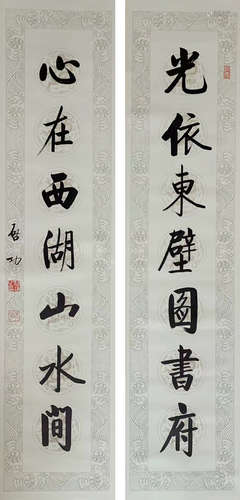 光依東壁圖書府
心在西湖山水間
啟功